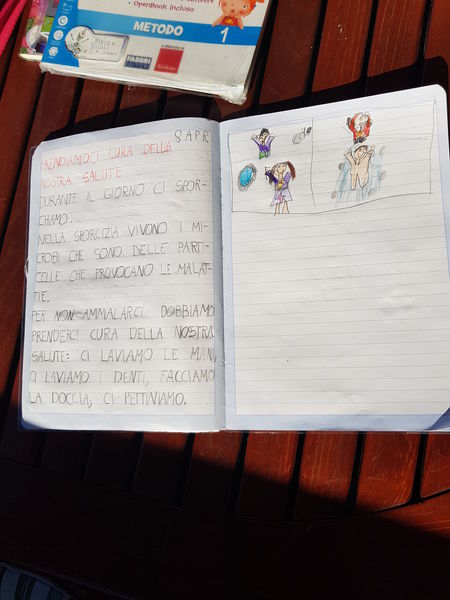 • OpenBook incluso
METODO
1
FABBRI
Erickson
8 APR
PRENDIAMOCI CURA DELLA
NOSTRA SALUTE
DURANTE IL GIORNO CI SPOR-
CHIAMO.
NELLA SPORCIZIA VIVONO I MI-
CROBI CHE SONO DELLE PARTI-
CELLE CHE PROVOCANO LE MALAT-
TIE.
PER NON AMMALARCI DOBBIAMO
PRENDERCI CURA DELLA NOSTRA
SALUTE: CI LAVIAMO LE MANI,
CI LAVIAMO I DENTI, FACCIAMO
LA DOCCIA, CI PETTINIAMO.